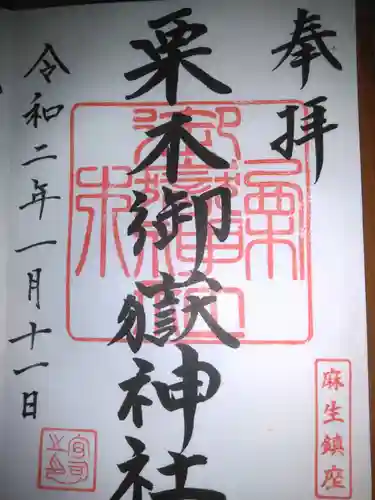 奉拝
栗木御嶽神社
令和二年一月十一日
麻生鎮座